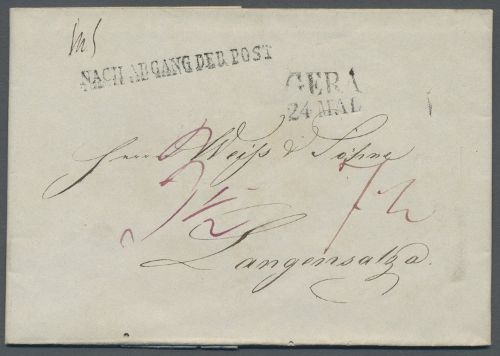 NACH ABGANG DER POST
GERA
24 MAI.
Herrn Weiß & Söhne
3½
Langensalza.